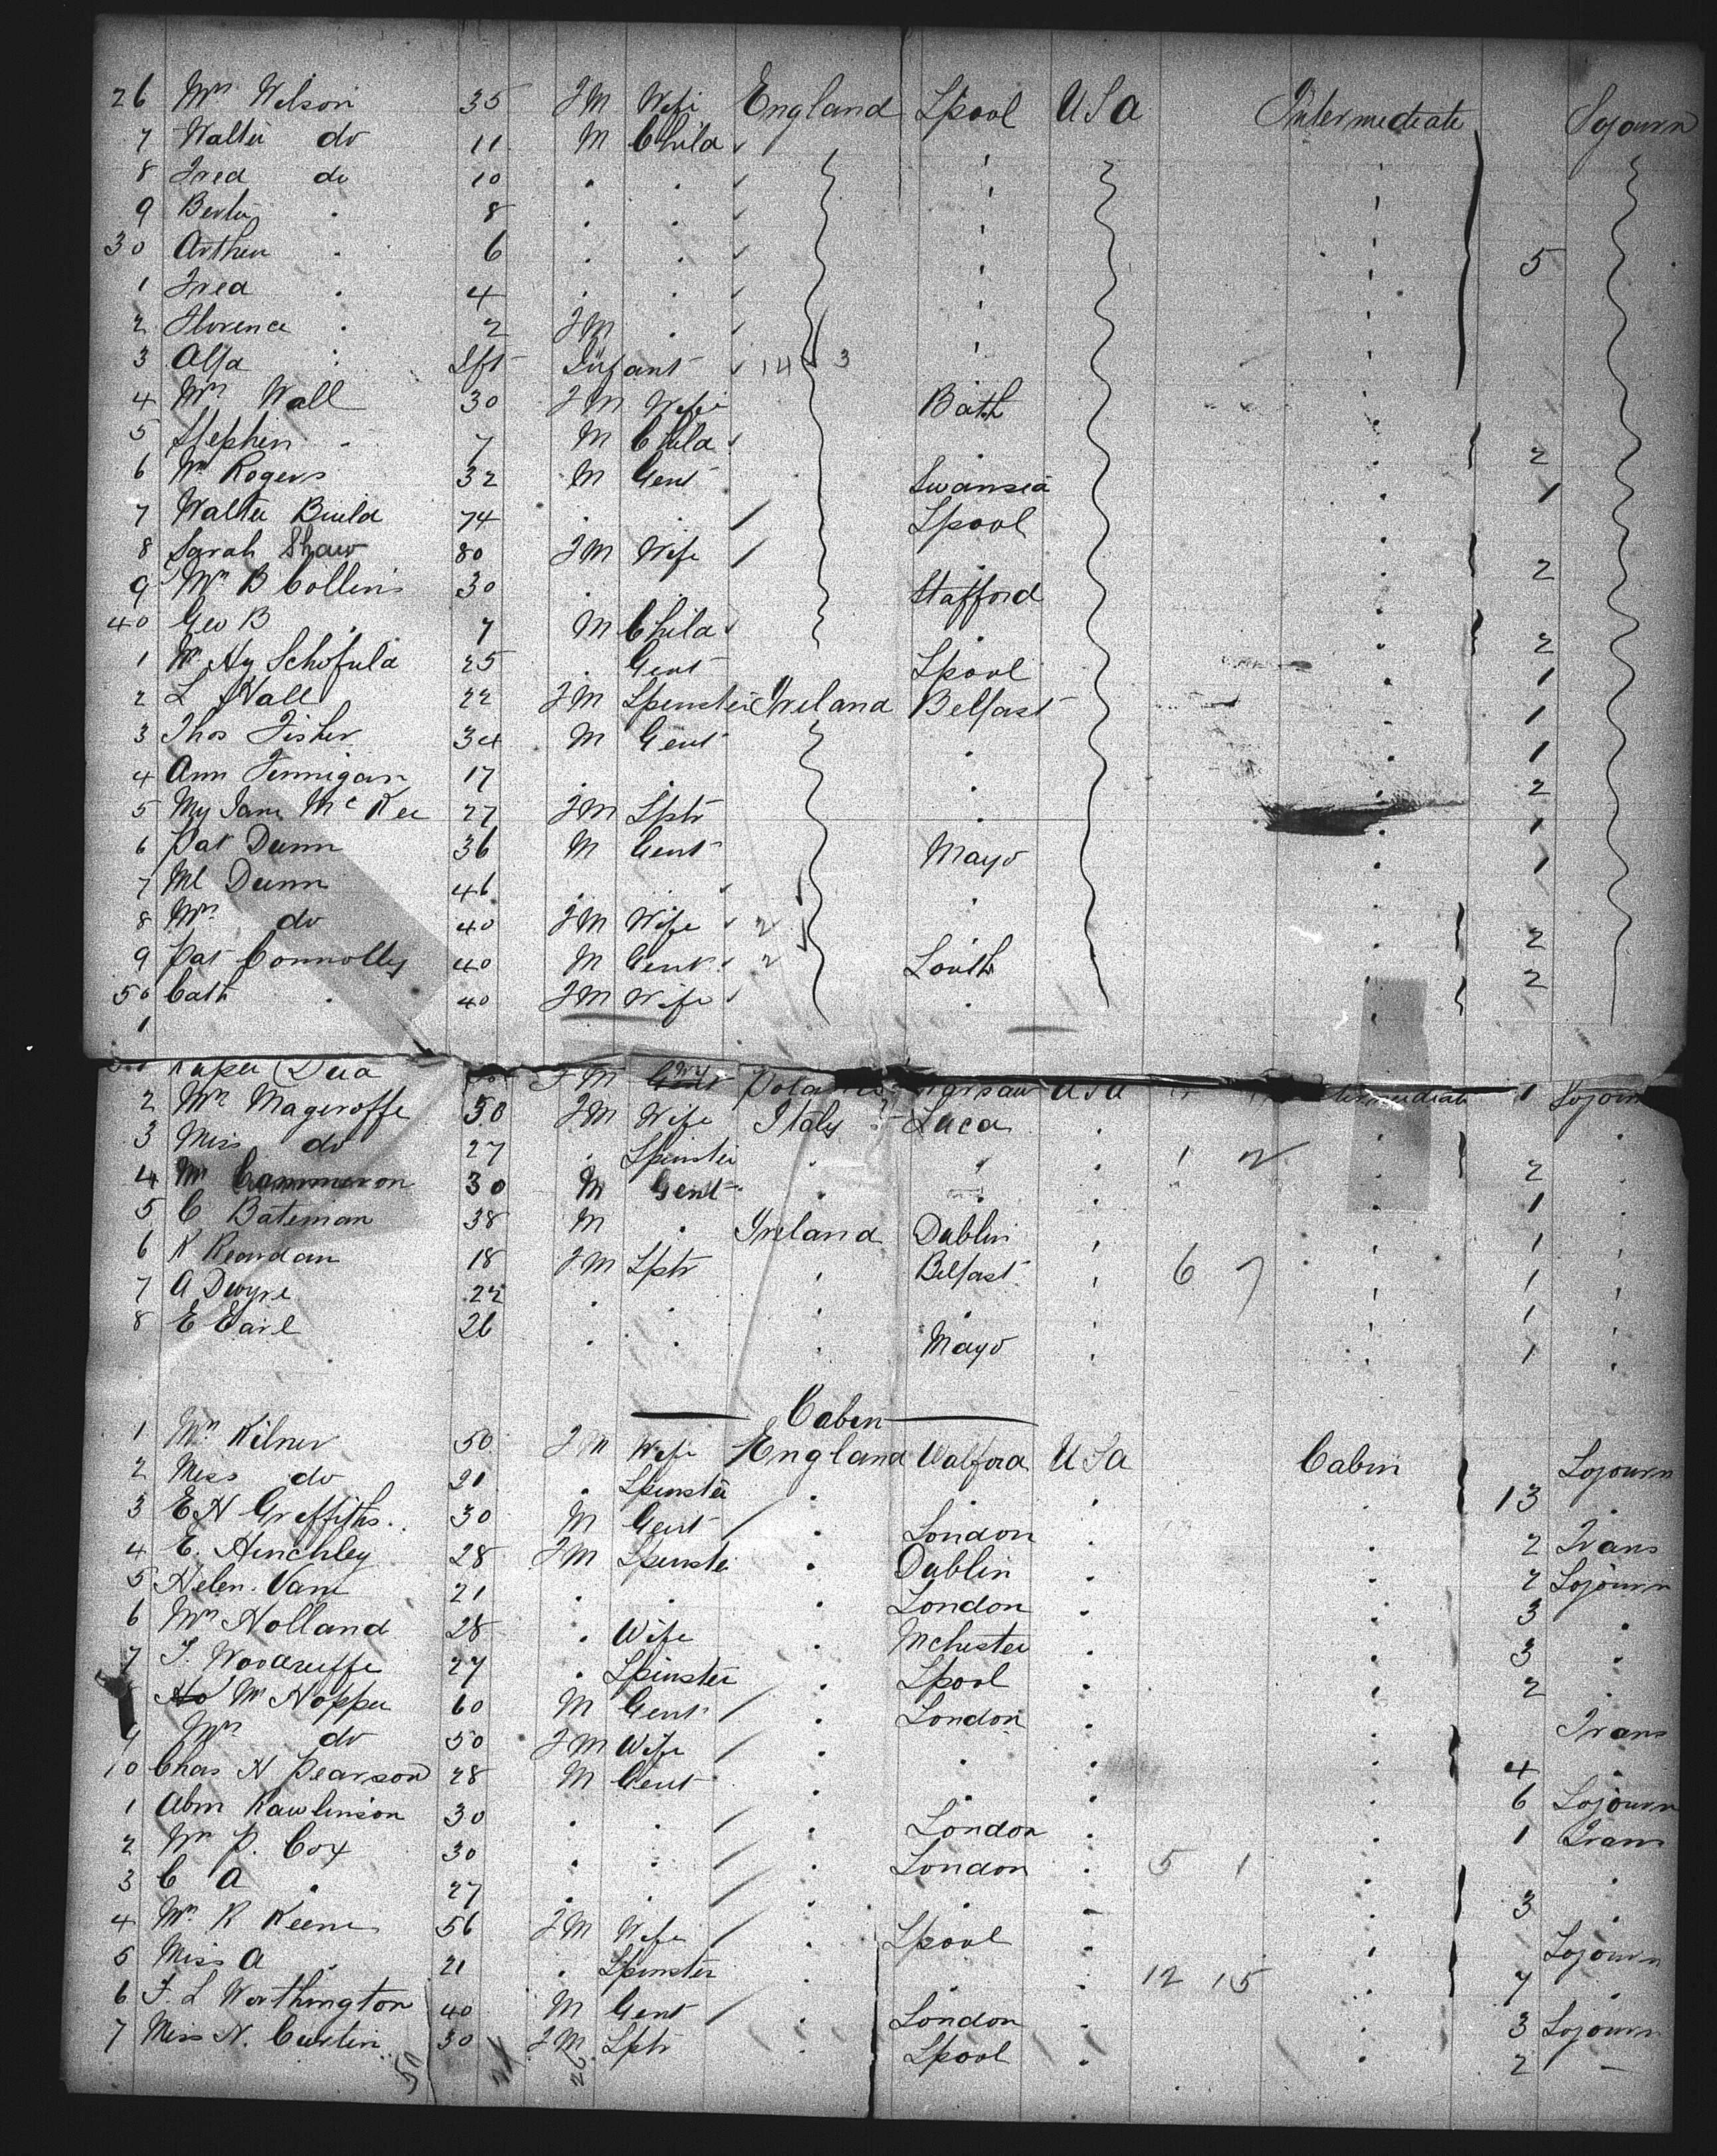 26 Mrs Wilson 35 FM Wife England Lpool USA Intermediate Sojourn
7 Walter do 11 M Child
8 Fred do 10 " "
9 Bertie " 8 " "
30 Arthur " 6 " " 5
1 Fred " 4 " "
2 Florence " 2 FM "
3 Alfd " Inft Infant 14 3
4 Mrs Wall 30 FM Wife Bath
5 Stephen " 7 M Child " 2
6 Mr Rogers 32 M Gent Swansea 1
7 Walter Build 74 " " Lpool
8 Sarah Shaw 80 FM Wife 2
9 Mrs B Collins 30 " " Stafford
40 Geo B " 7 M Child " 2
1 Mr Hy Schofield 25 " Gent Lpool 1
2 L Hall 22 FM Spinster Ireland Belfast 1
3 Thos Fisher 34 M Gent " 1
4 Ann Finnigan 17 " " " 2
5 My Jane McKee 27 FM Sptr " 1
6 Pat Dunn 36 M Gent Mayo 1
7 Ml Dunn 46 " " "
8 Mrs do 40 FM Wife 2 " 2
9 Pat Connolly 40 M Gent 2 Louth 2
50 Cath " 40 FM Wife "
1
Dea FM USA 1 Sojourn
2 Mrs Mageroffe 50 FM Wife Italy Luca "
3 Miss do 27 " Spinster " " " 1 2 " 2 "
4 Mr Cammeron 30 M Gent " " " " 1 "
5 C Bateman 38 M " Ireland Dublin " " 1 "
6 K Reardan 18 FM Sptr " Belfast " 6 7 " 1 "
7 A Dwyre 22 " " " " " " 1 "
8 E Earl 26 " " " Mayo " " 1 "
Cabin
1 Mrs Kilner 50 FM Wife England Walford USA Cabin Sojourn
2 Miss do 21 " Spinster " " " " 13 "
3 E H Griffiths 30 M Gent " London " " 2 Trans
4 E. Hinchley 28 FM Spinster " Dublin " " 2 Sojourn
5 Helen Vane 21 " " " London " " 3 "
6 Mrs Holland 28 " Wife " Mchester " " 3 "
7 F. Woodruffe 27 " Spinster " Lpool " " 2 "
Mr Hopper 60 M Gent " London " " Trans
9 Mrs do 50 FM Wife " " " " 4 "
10 Chas H Pearson 28 M Gent " " " " 6 Sojourn
1 Abm Rawlinson 30 " " " London " " 1 Trans
2 Mr P. Cox 30 " " " London " 5 1 " "
3 C A " 27 " " " " " " 3 "
4 Mrs R Keene 56 FM Wife " Lpool " " Sojourn
5 Miss A " 21 " Spinster " " " 12 15 " 7 "
6 F. L Worthington 40 M Gent " London " " 3 Sojourn
7 Miss N. Curtin 30 FM Sptr " Lpool " " 2 -